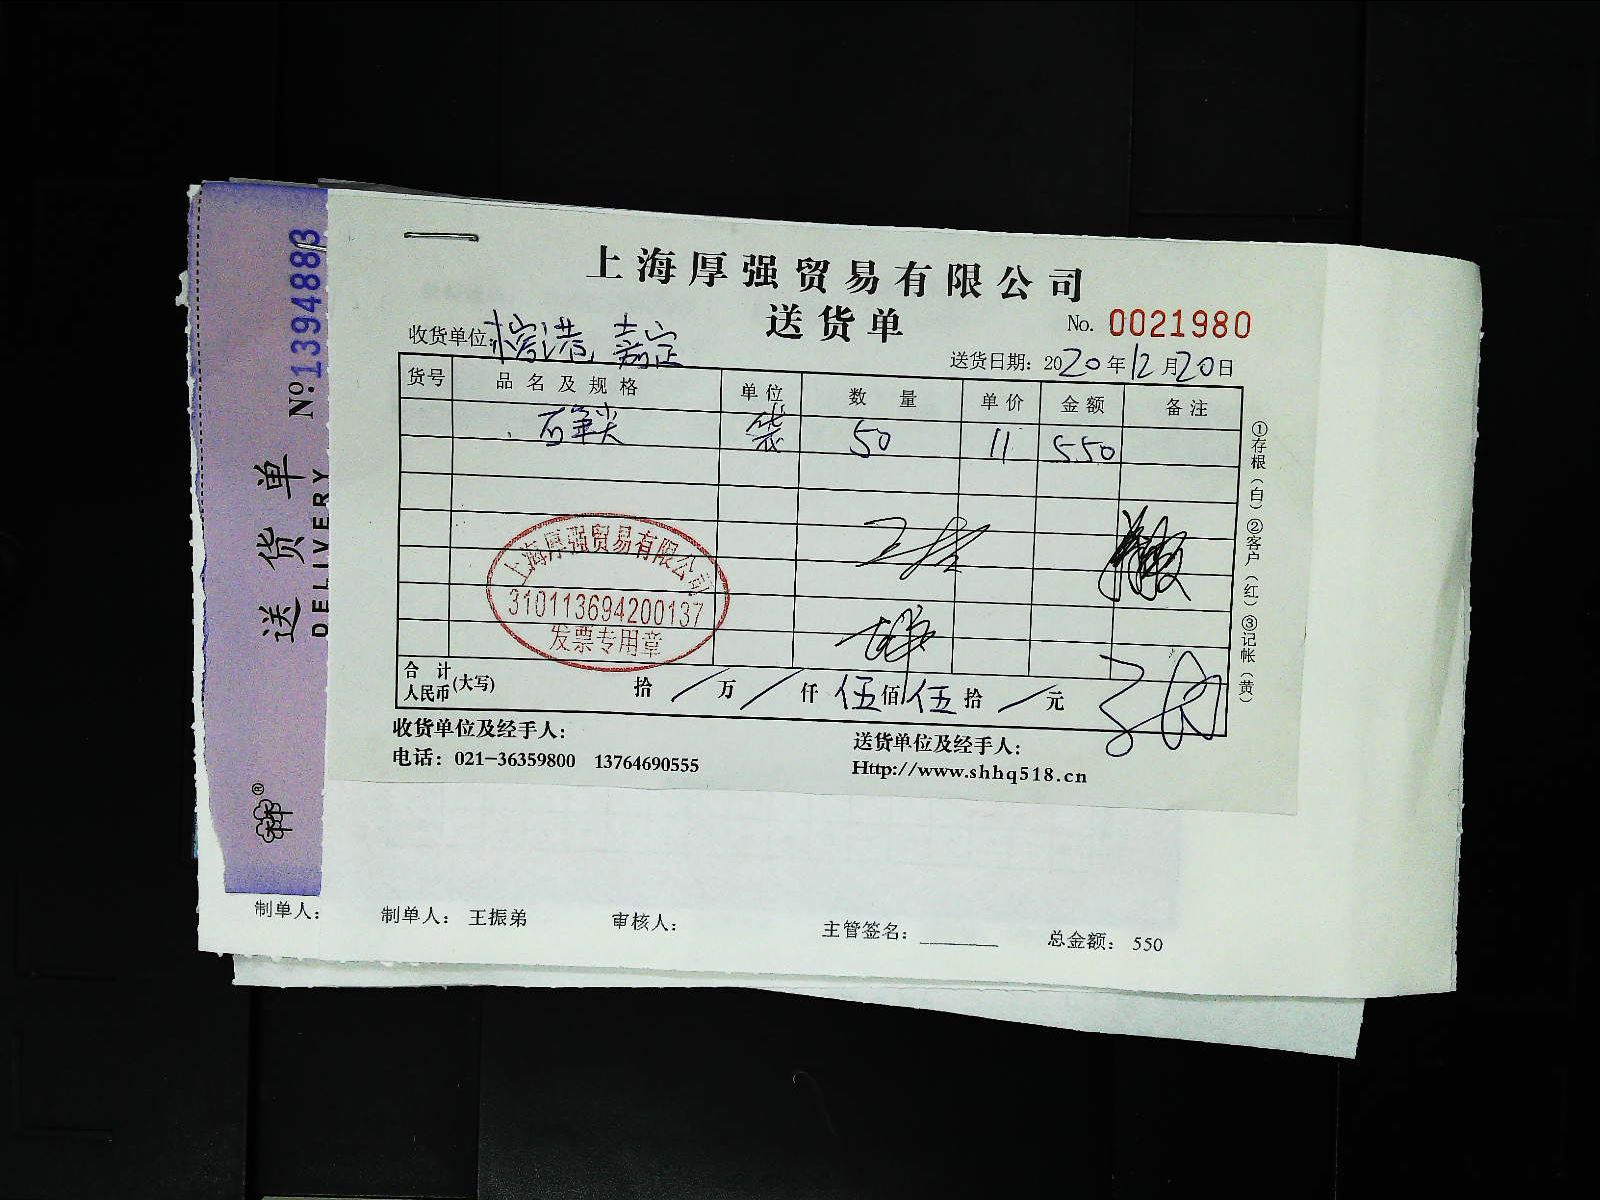 上海厚强贸易有限公司
送货单
No. 0021980
收货单位: 榕港 嘉定
送货日期: 2020年12月20日
货号 品名及规格 单位 数量 单价 金额 备注
袋 50 11 550
上海厚强贸易有限公司
310113694200137
发票专用章
合计人民币(大写) 拾 / 万 / 仟 伍 佰 伍 拾 / 元
收货单位及经手人:
送货单位及经手人:
电话: 021-36359800 13764690555
Http://www.shhq518.cn
①存根(白) ②客户(红) ③记帐(黄)
送货单
DELIVERY
No: 13948883
制单人:
制单人: 王振弟 审核人: 主管签名: 总金额: 550